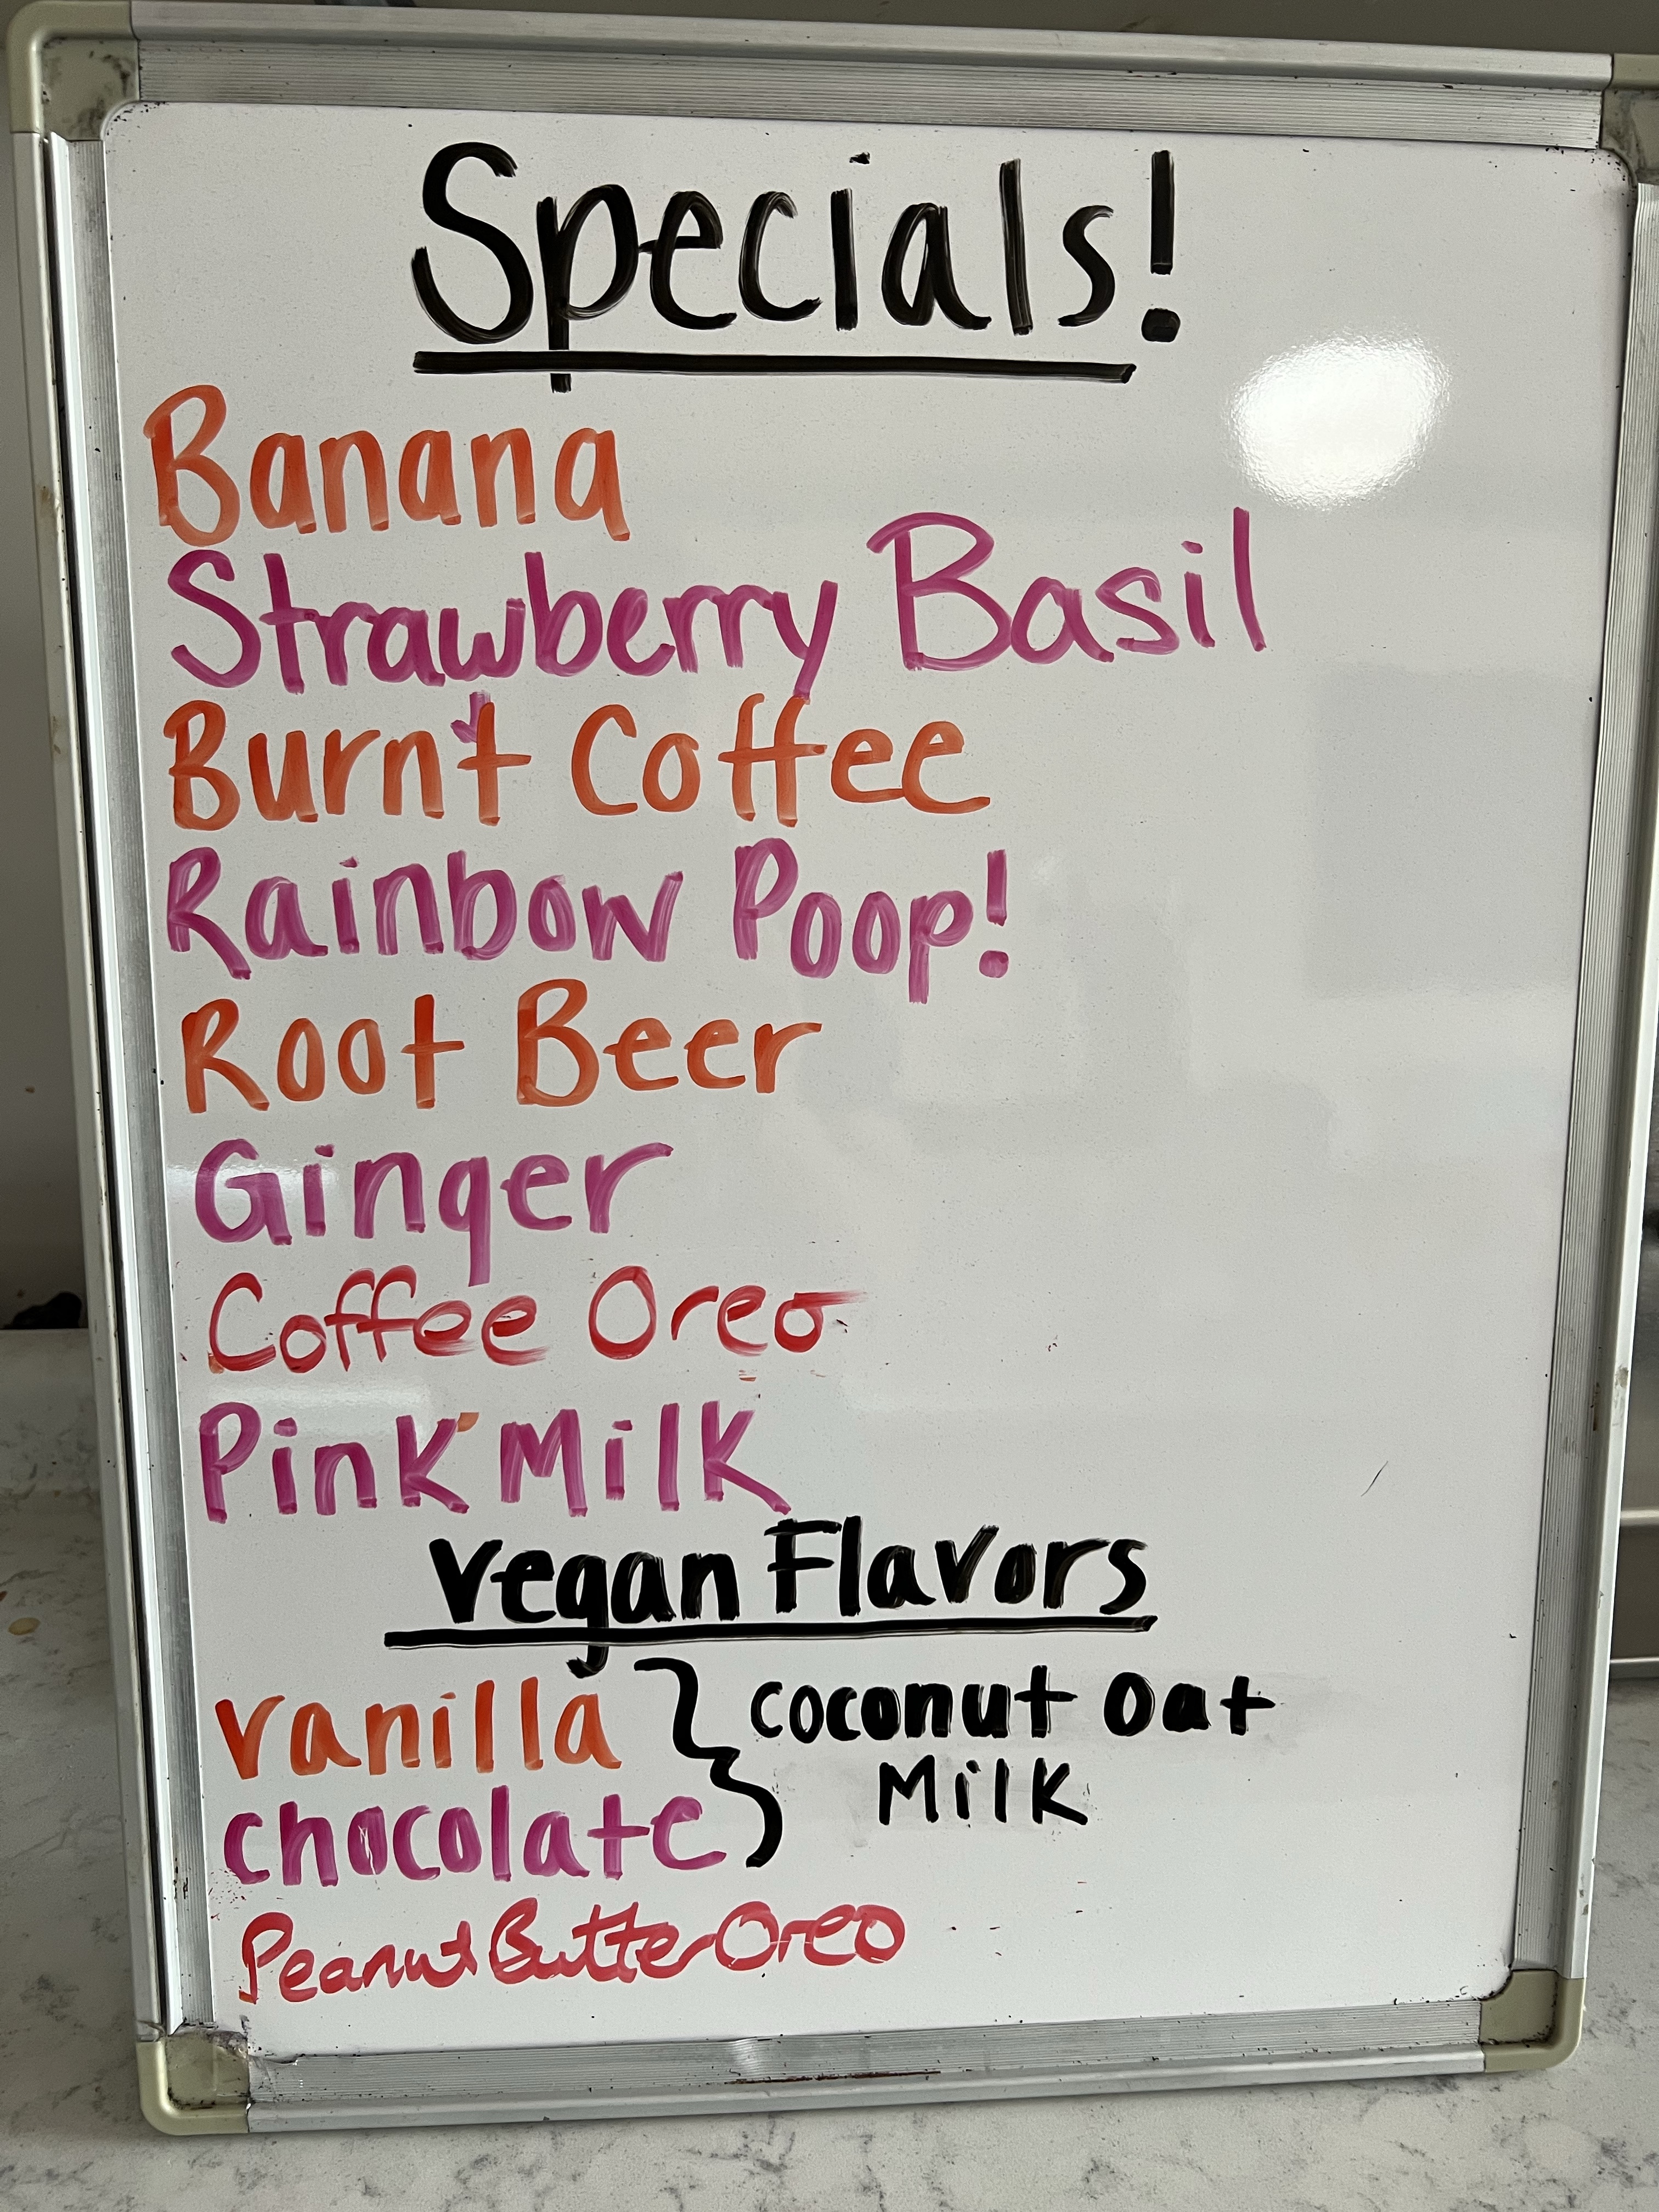 Specials!
Banana
Strawberry Basil
Burnt Coffee
Rainbow Poop!
Root Beer
Ginger
Coffee Oreo
Pink Milk
Vegan Flavors
vanilla } coconut oat
Milk
chocolate
Peanut Butter Oreo